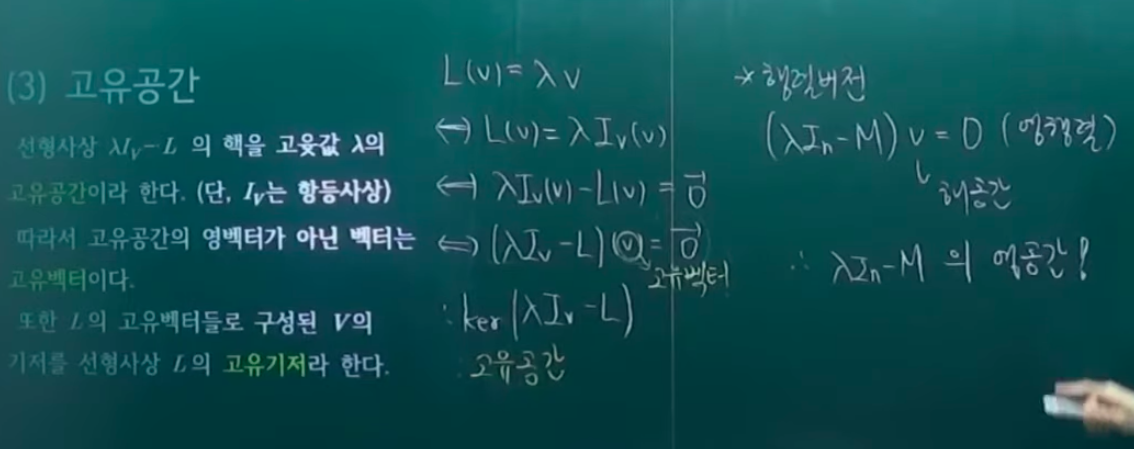 (3) 고유공간
선형사상 λI_V−L 의 핵을 고윳값 λ의
고유공간이라 한다. (단, I_V는 항등사상)
따라서 고유공간의 영벡터가 아닌 벡터는
고유벡터이다.
또한 L의 고유벡터들로 구성된 V의
기저를 선형사상 L의 고유기저라 한다.
L(v) = λv
⟺ L(v) = λI_V(v)
⟺ λI_V(v) − L(v) = 0⃗
⟺ (λI_V − L)(v) = 0⃗
고유벡터
: ker(λI_V − L)
: 고유공간
* 행렬버전
(λI_n−M) v = O (영행렬)
해공간
∴ λI_n−M 의 영공간!